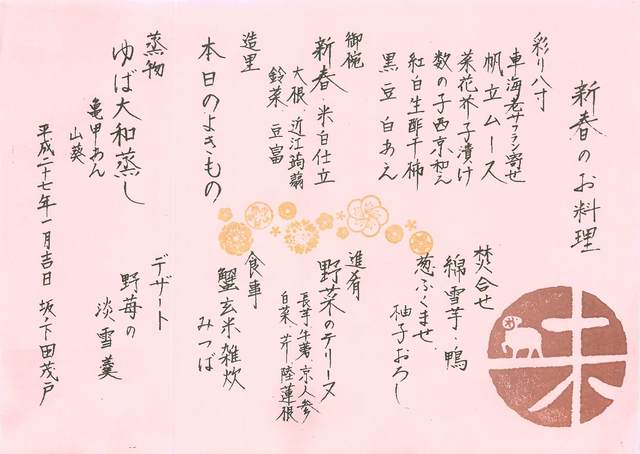 新春のお料理
彩り八寸
車海老サフラン寄せ
帆立ムース
菜花芥子漬け
数の子西京和え
紅白生酢干柿
黒豆白あえ
御椀
新春・米白仕立
大根・近江蒟蒻
鈴菜 豆富
造里
本日のよきもの
蒸物
ゆば大和蒸し
亀甲あん
山葵
焚合せ
綿雪芋・鴨
葱ふくませ
柚子おろし
進肴
野菜のテリーヌ
長芋・牛蒡・京人参
白菜・芹・陸蓮根
食事
蟹玄米雑炊
みつば
デザート
野苺の
淡雪羹
平成二十七年一月吉日 坂下田茂戸
未